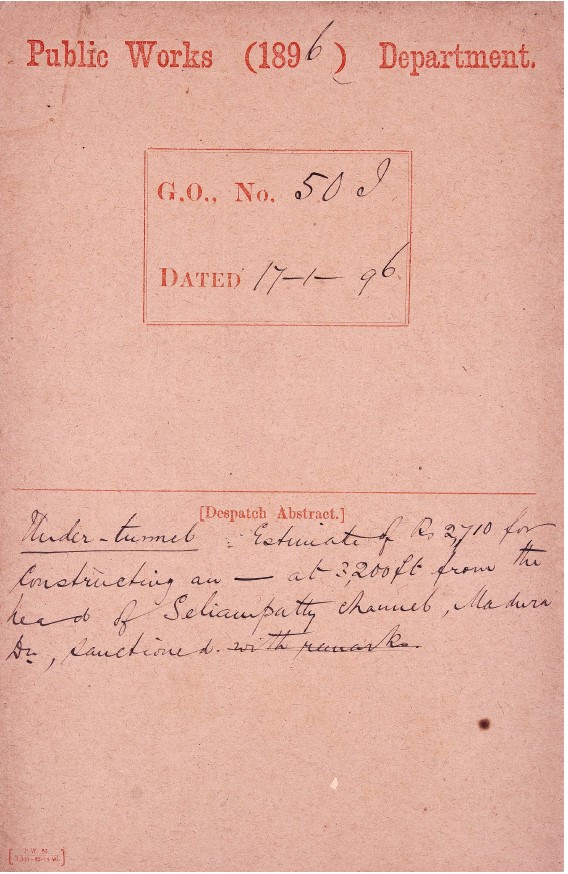 Public Works (1896) Department.
G.O., No. 50 I
DATED 17-1-96
[Despatch Abstract.]
Under-tunnel : Estimate of Rs 2,710 for
Constructing an — at 3,200 ft from the
head of Seliampatty Channel, Madura
Dn, sanctioned. with remarks.